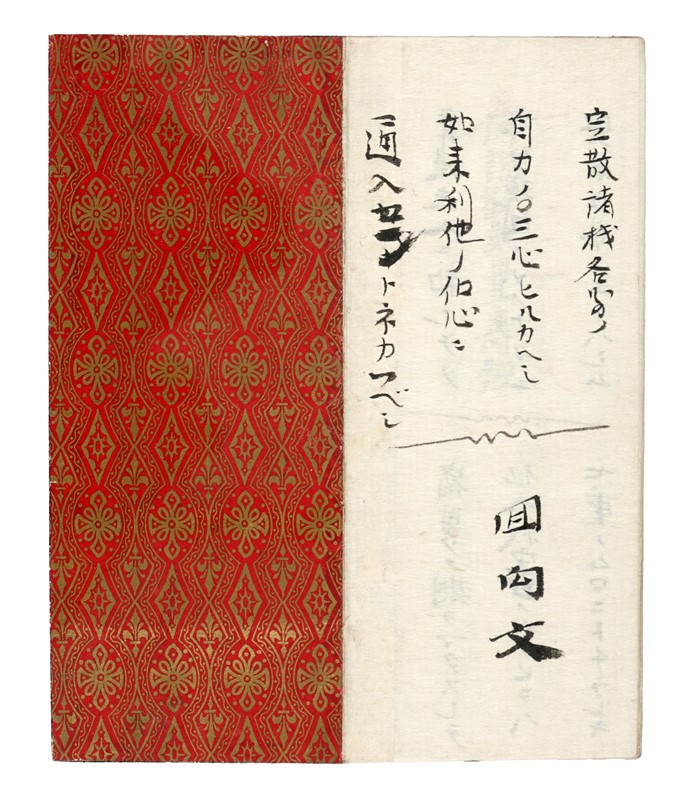 定散諸機各別ノ
自力ノ三心ヒルカヘシ
如来利他ノ信心ニ
通入セトネカフベシ
回向文